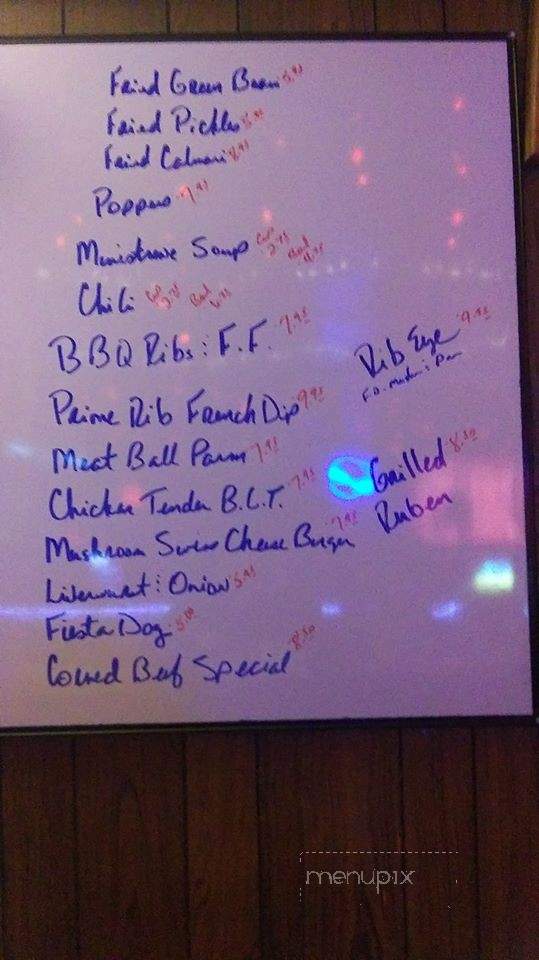 Fried Green Beans
Fried Pickles
Fried Calamari
Poppers 7.95
Ministrone Soup Cup Bowl
Chili Cup Bowl
BBQ Ribs : F.F. 7.95
Prime Rib French Dip 9.95
Meat Ball Parm 7.95
Chicken Tender B.L.T. 7.95
Mushroom Swiss Cheese Burger 7.95
Liverwurst : Onion 5.95
Fiesta Dog 5.00
Corned Beef Special 8.50
Rib Eye 9.95
Grilled 8.50
Ruben
menupix